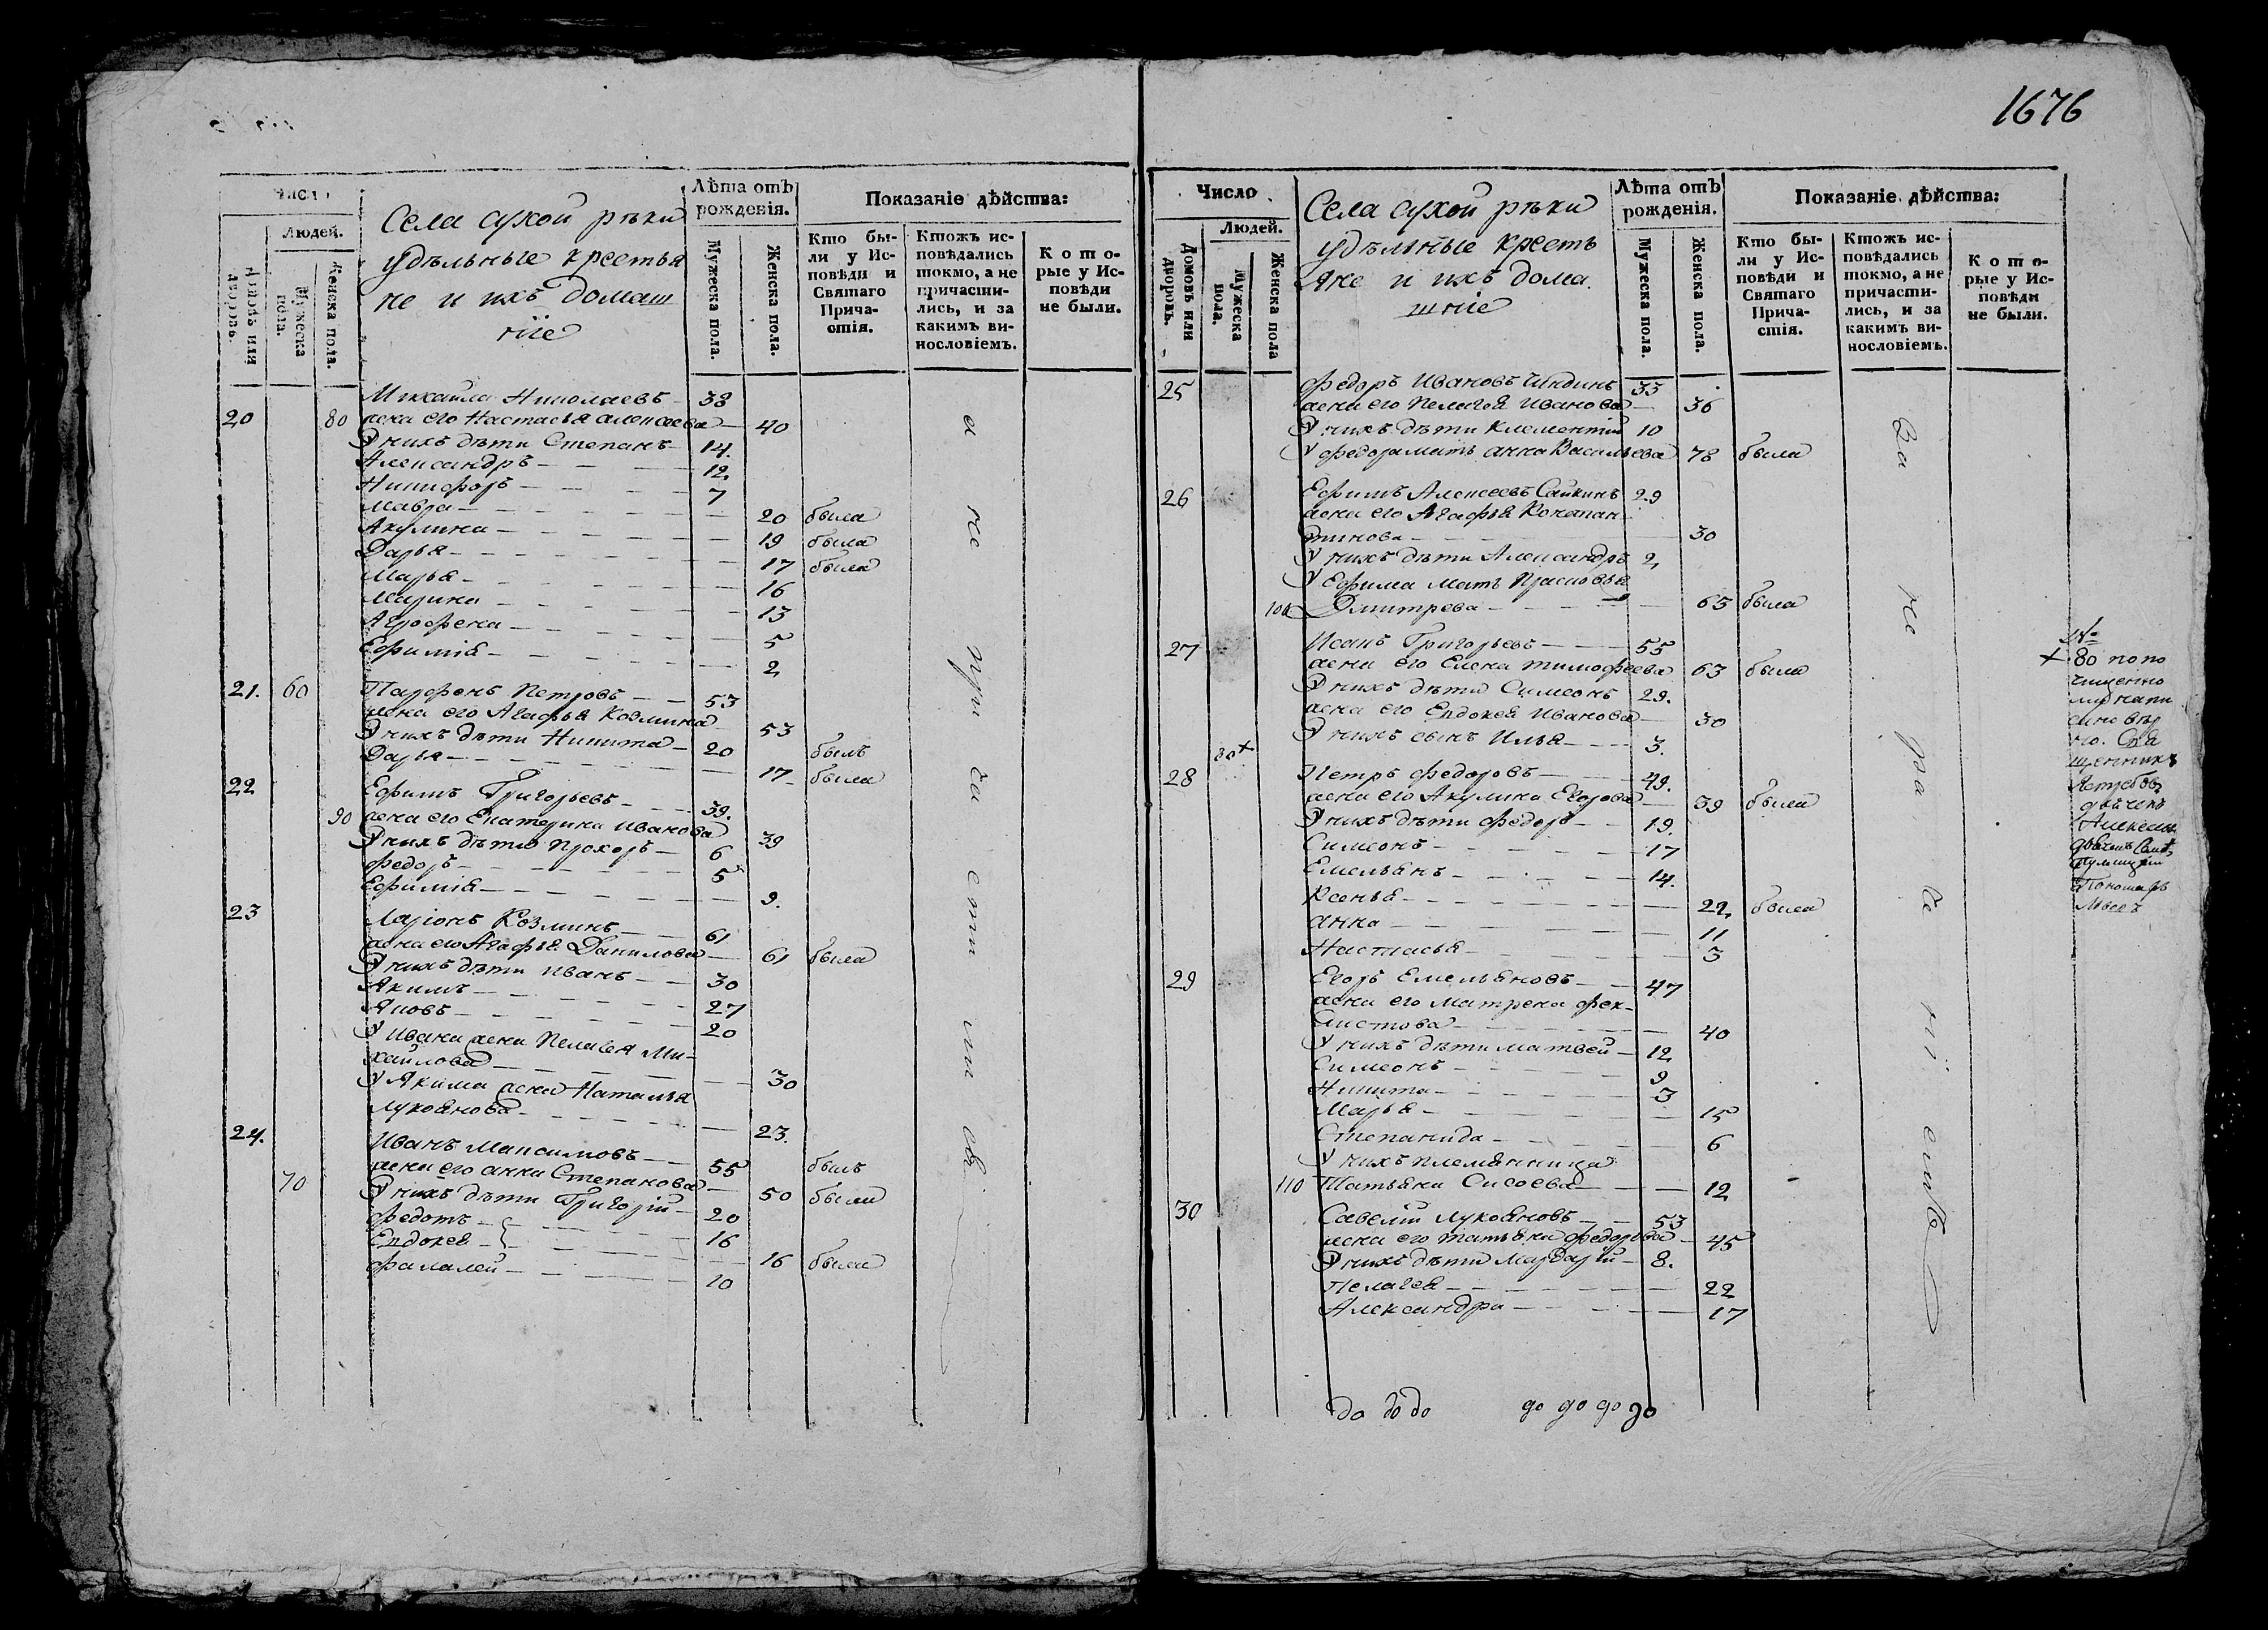 1676
Число
Людей.
Домовъ или дворовъ.
Мужеска пола.
Женска пола.
Села сухой рѣки
удѣльные крестья
не и ихъ домаш
ніе
Лѣта отъ рожденія.
Мужеска пола.
Женска пола.
Показаніе дѣйства:
Кто бы-
ли у Ис-
повѣди и
Святаго
Прича-
стія.
Ктожъ ис-
повѣдались
токмо, а не
причасти-
лись, и за
какимъ ви-
нословіемъ.
К о т о-
рые у Ис-
повѣди
не были.
Михайла Николаевъ 38
20 80 жена его Настасья алексеева 40
У нихъ дѣти Степанъ 14.
Александръ 12.
Никифоръ 7
Мавра 20 была
Акулина 19 была
Дарья 17 была
Марья 16
Марина 13
Агрофена 5
Ефимія 2
21. 60 Парфенъ Петровъ 53
жена его Агафья Козмина 53
У нихъ дѣти Никита 20 былъ
Дарья 17 была
22 Ефимъ Григорьевъ 39.
90 жена его Екатерина Иванова 39
У нихъ дѣти Прохоръ 6
Федоръ 5
Ефимія 9.
23 Ларіонъ Козминъ 61
жена его Агафья Данилова 61 была
У нихъ дѣти Иванъ 30
Акимъ 27
Яковъ 20
У Ивана жена Пелагея Ми-
хайлова 30
У Акима жена Наталья
Лукоянова 23.
24. Иванъ Максимовъ 55 былъ
70 жена его анна Степанова 50 была
У нихъ дѣти Григорій 20
Федотъ 16
Евдокея 16 была
Фалалей 10
а не при ча сти ли сь
Число
Людей.
Домовъ или дворовъ.
Мужеска пола.
Женска пола
Села сухой рѣки
удѣльные кресть
яне и ихъ дома
шніе
Лѣта отъ рожденія.
Мужеска пола.
Женска пола.
Показаніе дѣйства:
Кто бы-
ли у Ис-
повѣди и
Святаго
Прича-
стія.
Ктожъ ис-
повѣдались
токмо, а не
причасти-
лись, и за
какимъ ви-
нословіемъ.
К о т о-
рые у Ис-
повѣди
не были.
25 Федоръ Ивановъ 33
жена его Пелагея Иванова 36
У нихъ дѣти Клементий 10
У федора мать анна Васильева 78 была
26 Ефимъ Алексеевъ Сайкинъ 29
жена его Агафья Констан
тинова 30
У нихъ дѣти Александръ 2
У Ефима мать Прасковья
100 Дмитрева 65 была
27 Исакъ Григорьевъ 55
жена его Елена тимофеева 63 была
У нихъ дѣти Симеонъ 29.
жена его Евдокея Иванова 30
80+ У нихъ сынъ Илья 3.
28 Петръ федоровъ 49.
жена его Акулина Егорова 39 была
У нихъ дѣти федоръ 19.
Симеонъ 17
Емельянъ 14.
Ксенья 22 была
анна 11
Настасья 3
29 Егоръ Емельяновъ 47
жена его матрена фек-
листова 40
У нихъ дѣти матвей 12
Симеонъ 9
Никита 3
Марья 15
Степанида 6
У нихъ племянница
110 Татьяна Сисоева 12
30 Савелій Лукояновъ 53
жена его татьяна федорова 45
У нихъ дѣти Мардарій 8.
Пелагея 22
Александра 17
За не ра де ні емъ
№
+ 80 попо
чищенно
му напи
сано вѣр
но. Свя
щенникъ
Алексей
Пономарь
до до до до до до до